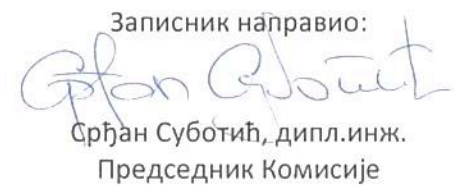 Записник направио:
Срђан Суботић
Срђан Суботић, дипл.инж.
Председник Комисије